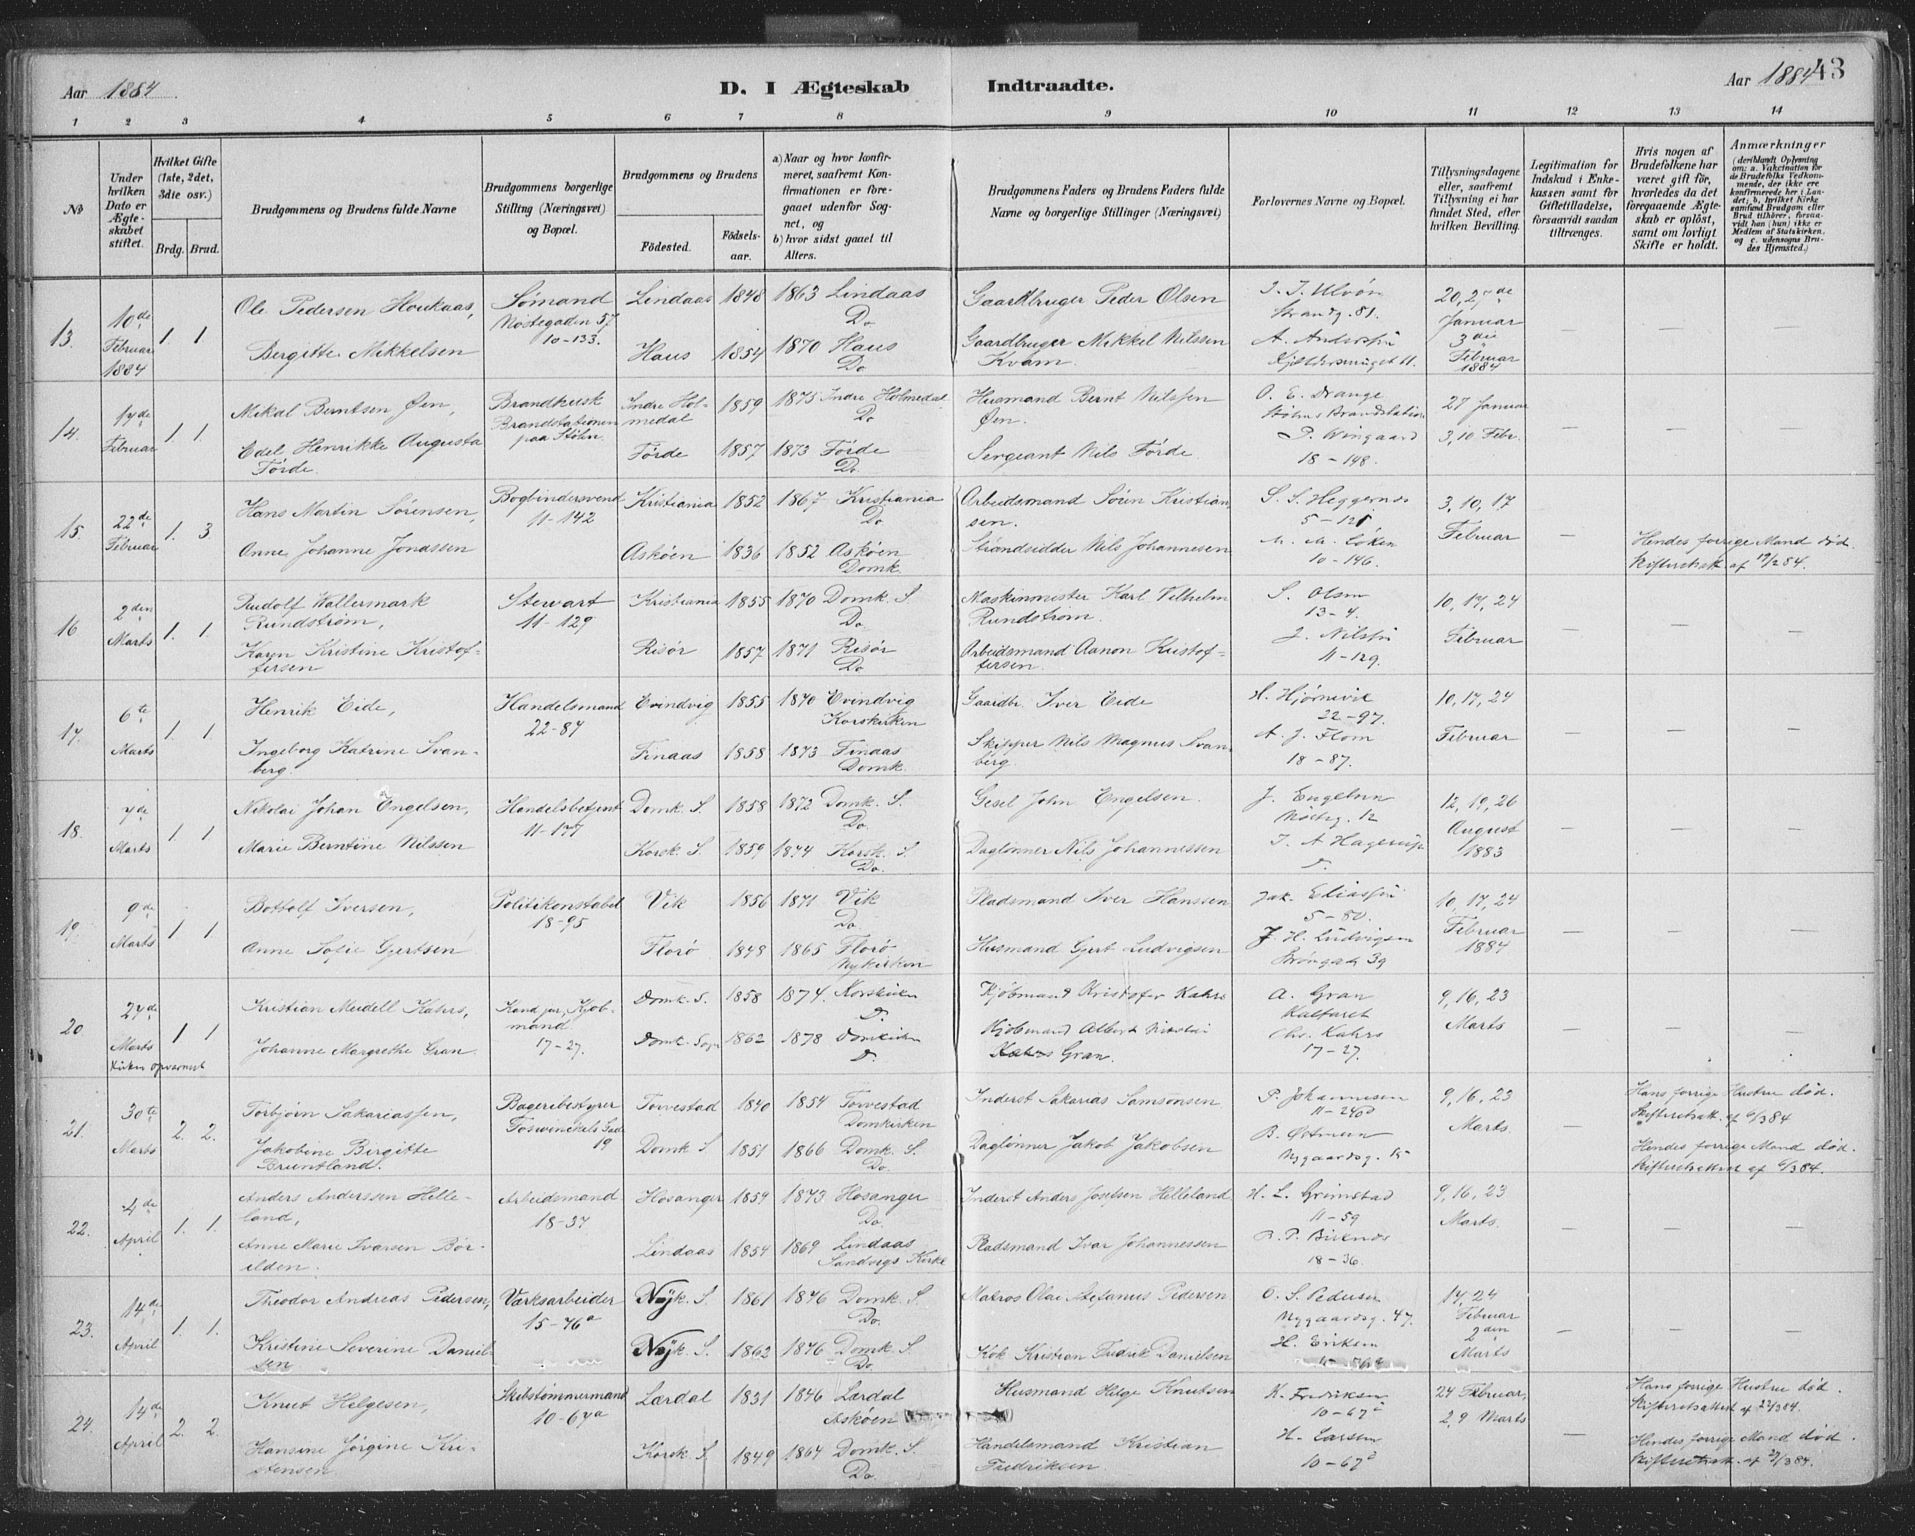 Aar 1884
D. I Ægteskab Indtraadte.
Aar 1884
43
1 2 3 4 5 6 7 8 9 10 11 12 13 14
No
Under hvilken Dato er Ægteskabet stiftet.
Hvilket Gifte (1ste, 2det, 3die osv.)
Brdg. Brud.
Brudgommens og Brudens fulde Navne
Brudgommens borgerlige Stilling (Næringsvei) og Bopæl.
Brudgommens og Brudens
Födested.
Födselsaar.
a) Naar og hvor konfirmeret, saafremt Konfirmationen er foregaaet udenfor Sognet, og
b) hvor sidst gaaet til Alters.
Brudgommens Faders og Brudens Faders fulde Navne og borgerlige Stillinger (Næringsvei)
Forlovernes Navne og Bopæl.
Tillysningsdagene eller, saafremt Tillysning ei har fundet Sted, efter hvilken Bevilling.
Legitimation for Indskud i Enkekassen samt for Giftetilladelse, forsaavidt saadan tiltrænges.
Hvis nogen af Brudefolkene har været gift för, hvorledes da det foregaaende Ægteskab er oplöst, samt om lovligt Skifte er holdt.
Anmærkninger
(deriblandt Oplysning om: a. Vakcination for de Brudefolks Vedkommende, der ikke ere konfirmerede her i Landet; b. hvilket Kirkesamfund Brudgom eller Brud tilhörer, forsaavidt han (hun) ikke er Medlem af Statskirken, og c. udensogns Brudes Hjemsted.)
13. 10de Februar 1884 1. 1
Ole Pedersen Houkaas,
Sömand
Nöstegaden 57
10-133.
Lindaas 1848 1863 Lindaas
Do
Gaardbruger Peder Olsen
J. J. Ulvön
Strandg. 81.
20, 27de Januar
3die Februar 1884
Bergitte Mikkelsen
Haus 1854 1870 Haus
Do
Gaardbruger Mikkel Nilssen Kvam.
14. 17de Februar 1. 1.
Mikal Berntsen Øen,
Brandkusk
Brandstationen paa Stöln
Indre Holmedal 1859 1875 Indre Holmedal
Do
Husmand Bernt Nilssen Øen.
O. E. Drange
27 Januar
3, 10 Febr.
Edel Henrikke Augusta Förde.
Förde 1857 1873 Förde
Do
Sergeant Nils Förde.
P. Wingaard
18-148.
15. 22de Februar 1. 3
Hans Martin Sörensen,
Bogbindersvend
11-142
Kristiania 1852 1867 Kristiania
Do
Arbeidsmand Sören Kristiansen.
S. S. Heggernes
3, 10, 17 Februar
Anne Johanne Jonassen
Askøen 1836 1852 Askøen
Domk.
Strandsidder Nils Johannesen
M. M. Löken
10-146.
Hendes forrige Mand död.
Skifteretsatt. af 19/2 84.
16 2den Marts 1. 1.
Rudolf Wallermark Rundström,
Stewart
11-129
Kristiania 1855 1870 Domk. S.
Do.
Maskinmester Karl Vilhelm Rundström.
S. Olsen
13-4.
10, 17, 24 Februar
Karen Kristine Kristoffersen
Risör 1857 1871 Risör
Do
Arbeidsmand Aanon Kristoffersen.
J. Nilssen
11-129.
17. 6te Marts 1. 1.
Henrik Eide,
Handelsmand
22-87
Evindvig 1855 1870 Evindvig
Korskirken
Gaardbr. Iver Eide
H. Hjörnevik
22-97.
10, 17, 24 Februar
Ingeborg Katrine Svanberg.
Finaas 1858 1873 Finaas
Domk.
Skipper Nils Magnus Svanberg.
A. J. Flom
18-87.
18. 7de Marts 1 1
Nikolai Johan Engelsen,
Handelsbetjent
11-177
Domk. S. 1858 1872 Domk. S.
Do.
Gesel John Engelsen.
J. Engelsen
Nöstg. 12
12, 19, 26 August 1883
Marie Berntine Nilssen
Korsk. S. 1859 1874 Korsk. S.
Do.
Daglönner Nils Johannessen
J. A. Hagerup
19. 9de Marts 1 1.
Bottolf Iversen,
Politikonstabel
18-95
Vik 1856 1871 Vik
Do
Pladsmand Iver Hanssen
Jak. Eliassen
5-80.
10, 17, 24 Februar 1884
Anne Sofie Gjertsen
Florö 1848 1865 Florö
Nykirken
Husmand Gjert Ludvigsen
J. H. Ludvigsen
20 27de Marts 1 1
Kirken opvarmet
Kristian Meidell Kahrs,
Kand. jur., Kjöbmand
17-27.
Domk. S. 1858 1874. Korskirken
D.
Kjöbmand Kristofer Kahrs
A. Gran
Kalfaret
9, 16, 23 Marts
Johanne Margrethe Gran.
Domk. Sogn 1862 1878 Domkirken
D.
Kjöbmand Albert Nikolai Gran.
Chr. Kahrs
17-27.
21. 30te Marts 2. 2.
Torbjörn Sakariassen,
Bageribestyrer
19
Torvestad 1840 1854 Torvestad
Domkirken
Inderst Sakarias Samsonsen
P. Johannesen
9, 16, 23 Marts.
Hans forrige Hustru död.
Skifteretsatt. af 6/3 84
Jakobine Birgitte Bruntland.
Domk S 1851 1866 Domk. S.
Do.
Daglönner Jakob Jakobsen
B. Østman
Nygaardsg. 15
Hendes forrige Mand död.
Skifteretsattest af 6/3 84.
22. 4de April 1. 1.
Anders Anderssen Helleland,
Arbeidsmand
18-37
Hosanger 1859 1873 Hosanger
Do.
Inderst Anders Josefsen Helleland
H. L. Grimstad
11-59
9, 16, 23 Marts.
Anne Marie Ivarsen Börilden.
Lindaas 1854 1869 Lindaas
Sandvigs Kirke
Pladsmand Ivar Johannessen
18-36
23. 14de April 1. 1.
Theodor Andreas Pedersen,
Værksarbeider
15-76a
Nyk. S. 1861 1876 Domk. S.
Do.
Matros Olai Stefanus Pedersen
O. S. Pedersen
Nygaardsg. 47.
17, 24 Februar
2den Marts
Kristine Severine Danielsen
Nyk. S. 1862 1876 Domk. S
Do.
Kok Kristian Fredrik Danielsen
H. Eriksen
24. 14de April 2. 2.
Knut Helgesen,
Skibstømmermand
10-67a
Lærdal 1831 1846 Lærdal
Askøen
Husmand Helge Knutsen
K. Fredriksen
10-67a
24 Februar,
2, 9 Marts
Hans forrige Hustru död.
Skifteretsattest af 27/3 84.
Hansine Jörgine Kristensen
Korsk. S. 1849 1864 Domk. S.
Do.
Handelsmand Kristian Fredriksen
H. Larsen
10-67a
Hendes forrige Mand död.
Skifteretsatt. af 27/3 84.